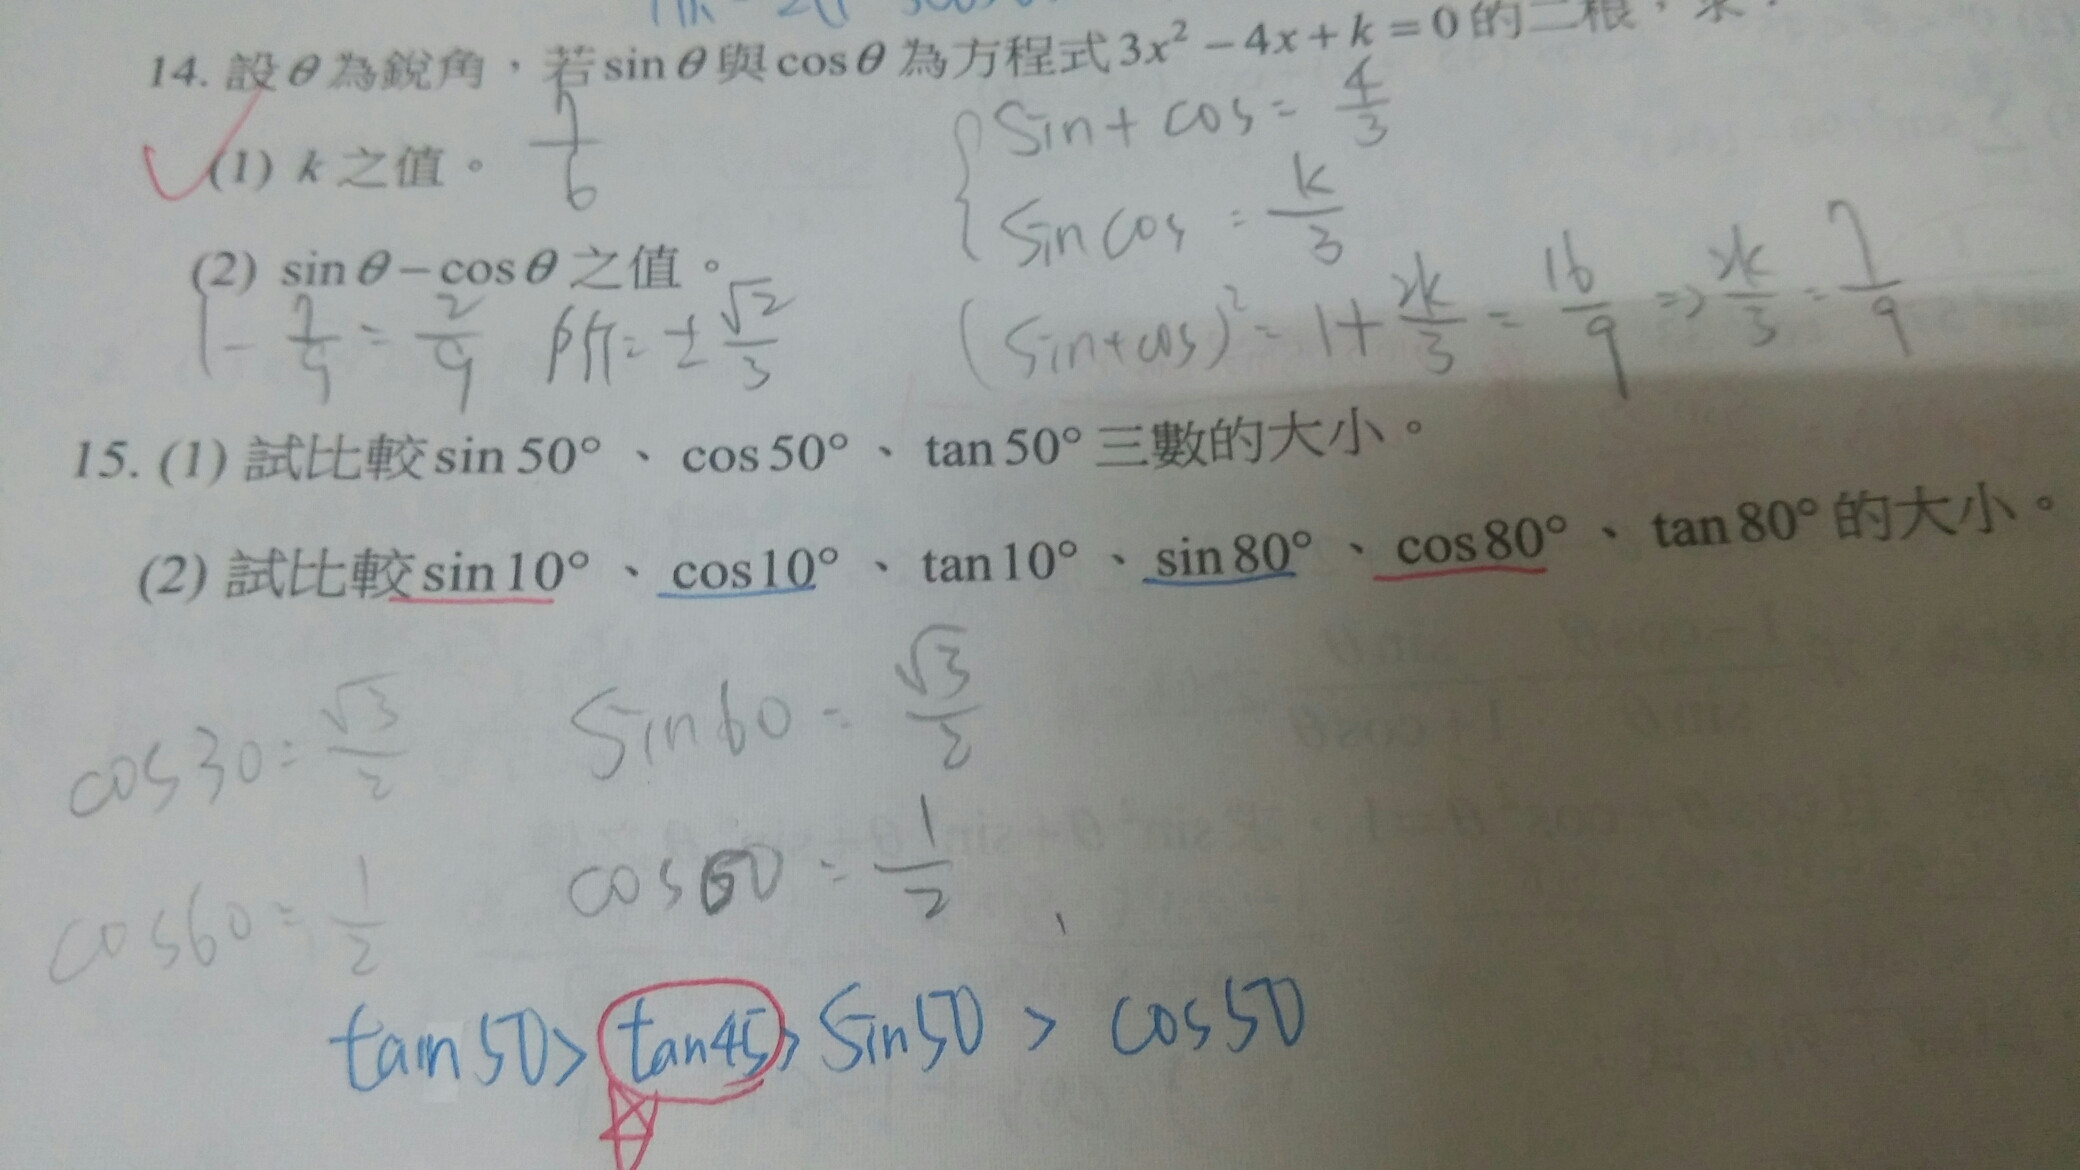 14. 設θ為銳角，若sinθ與cosθ為方程式3x² − 4x + k = 0的二根，求：
sin + cos = 4/3
(1) k 之值。 7/6
sin cos = k/3
(2) sinθ − cosθ 之值。
(sin+cos)² = 1 + 2k/3 = 16/9 => 2k/3 = 7/9
1 − 7/9 = 2/9 所 = ±√2/3
15. (1) 試比較sin 50°、cos 50°、tan 50°三數的大小。
(2) 試比較sin 10°、cos 10°、tan 10°、sin 80°、cos 80°、tan 80°的大小。
cos30 = √3/2 sin60 = √3/2
cos60 = 1/2 cos60 = 1/2
tan50 > tan45 > sin50 > cos50